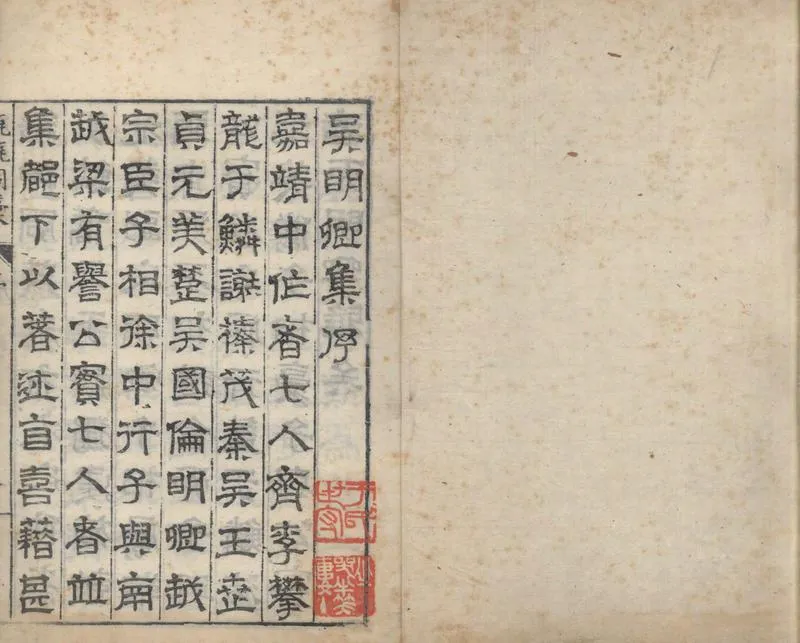 吳明卿集序
嘉靖中作者七人齊李攀
龍于鱗謝榛茂秦吳王世
貞元美楚吳國倫明卿越
宗臣子相徐中行子與南
越梁有譽公實七人者並
集都下以著述自喜藉甚